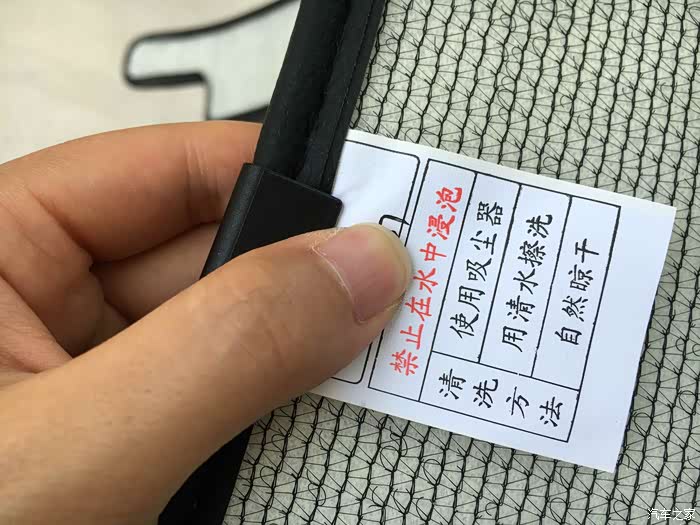 禁止在水中浸泡
使用吸尘器
用清水擦洗
自然晾干
清洗方法
汽车之家